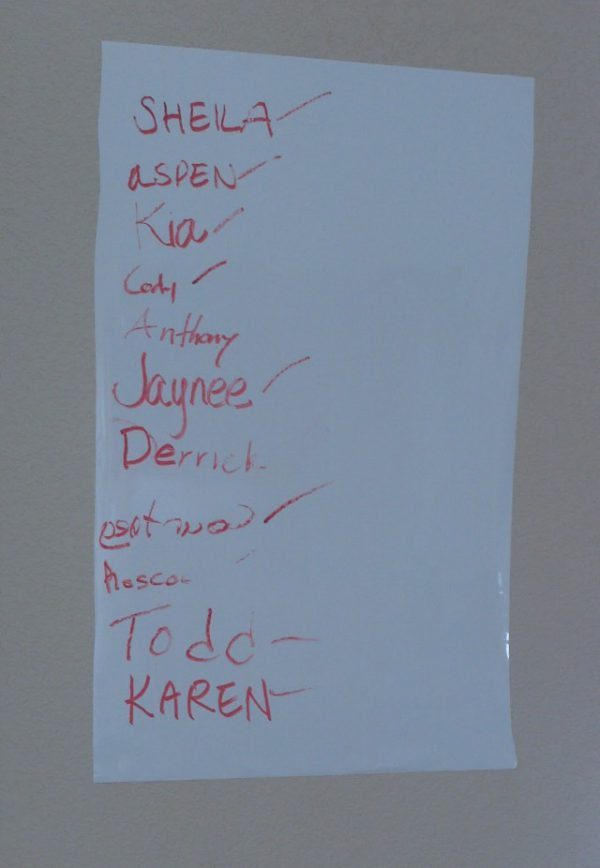 SHEILA
aSPEN
Kia
Cody
Anthony
Jaynee
Derrick
Roscoe
Todd
KAREN